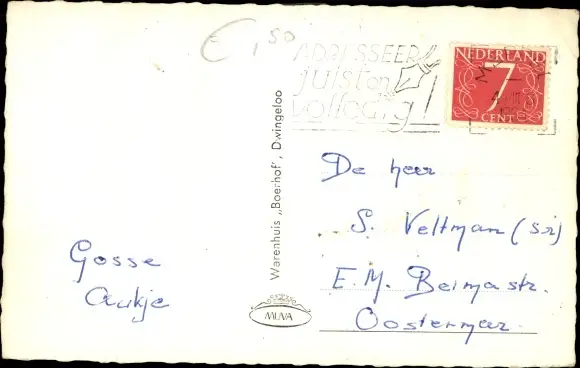 € 1,50
ADRESSEER
juist en
volledig!
NEDERLAND
7
CENT
Warenhuis „Boerhof", Dwingeloo
De heer
S. Veltman (sr)
E.M. Beimastr.
Oostermar.
Gosse
Aukje
MUVA